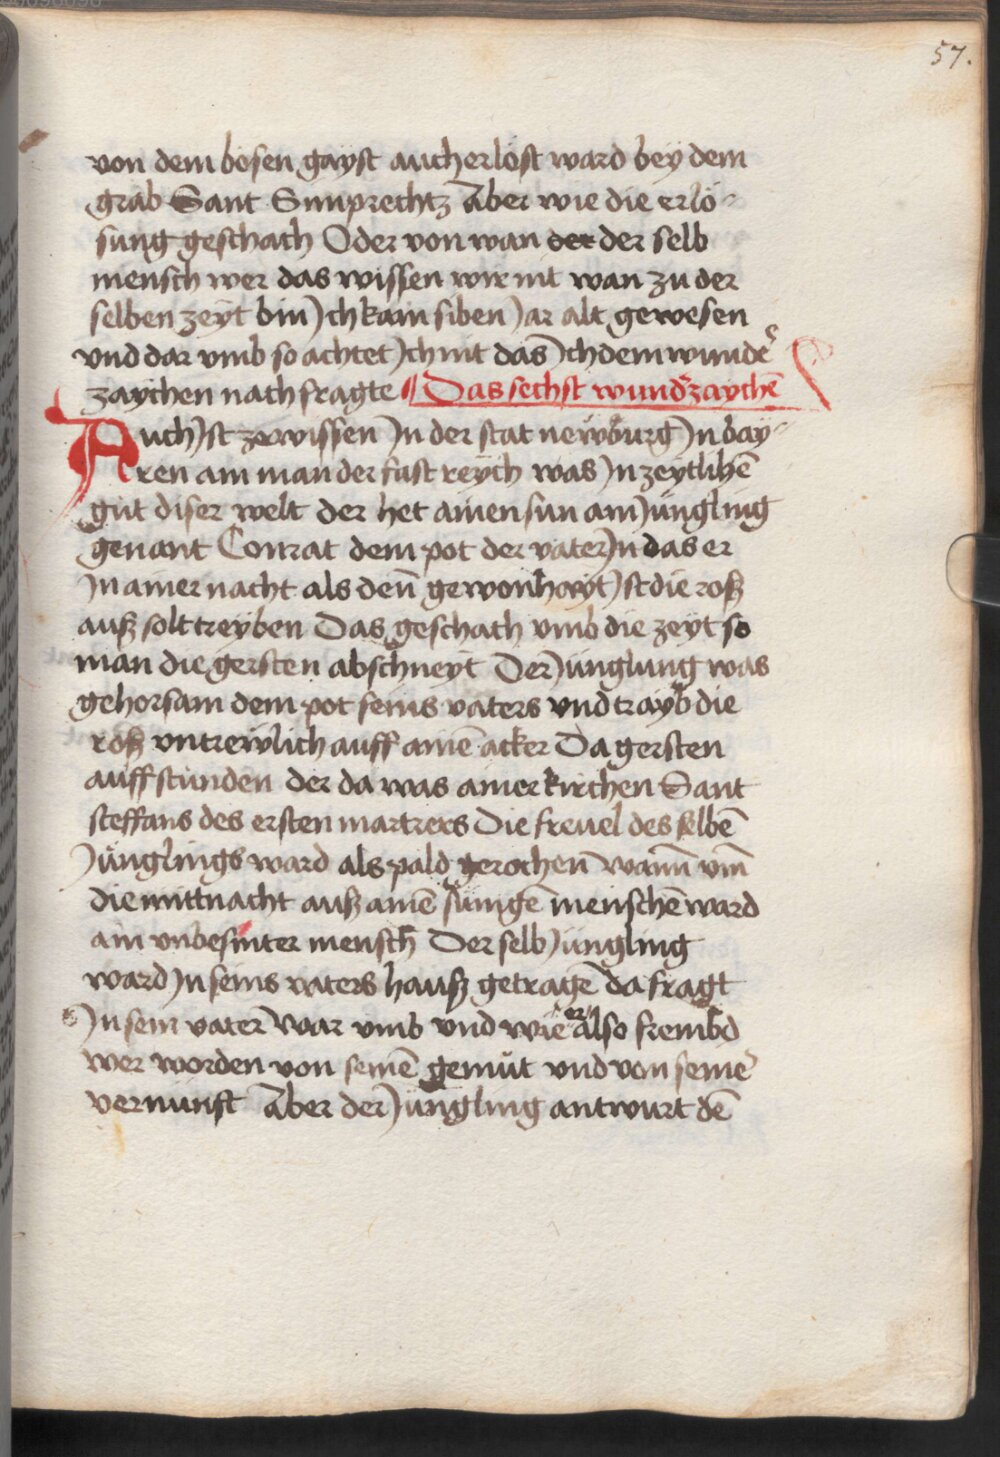 57.
von dem bösen gayst auch erlöst ward bey dem
grab Sant Simprechtz Aber wie die erlö-
sung geschach Oder von wan der der selb
mensch wer das wissen wir nit wan zu der
selben zeyt bin Ich kain siben Jar alt gewesen
vnd dar vmb so achtet Ich nit das Ich dem wunder
zaychen nach fragte ¶ Das sechst wunderzaychē
Auch Ist zewissen In der stat newburg In bay-
ren am man der fast reych was In zeytlihē
gut diser welt der het ainen sun am Jüngling
genant Conrat dem pot der vater In das er
In ainer nacht als den̄ gewonhayt Ist die roß
auß solt treyben Das geschach vmb die zeyt so
man die gersten abschneyt Der Jünglung was
gehorsam dem pot seins vaters vnd trayb die
roß vntrewlich auff ainē acker Da gersten
auff stünden der da was ainer kirchen Sant
steffans des ersten martrers Die freuel des selbē
Jünglings ward als pald gerochen wann vm̄
die mittnacht auß ainē sinnigē menschē ward
ain vnbesinter mensch Der selb Jüngling
ward In seins vaters hauß getragē da fragt
In sein vater war vmb vnd wie er also frembd
wer worden von seinē gemüt vnd von seiner
vernunft Aber der Jüngling antwurt dē